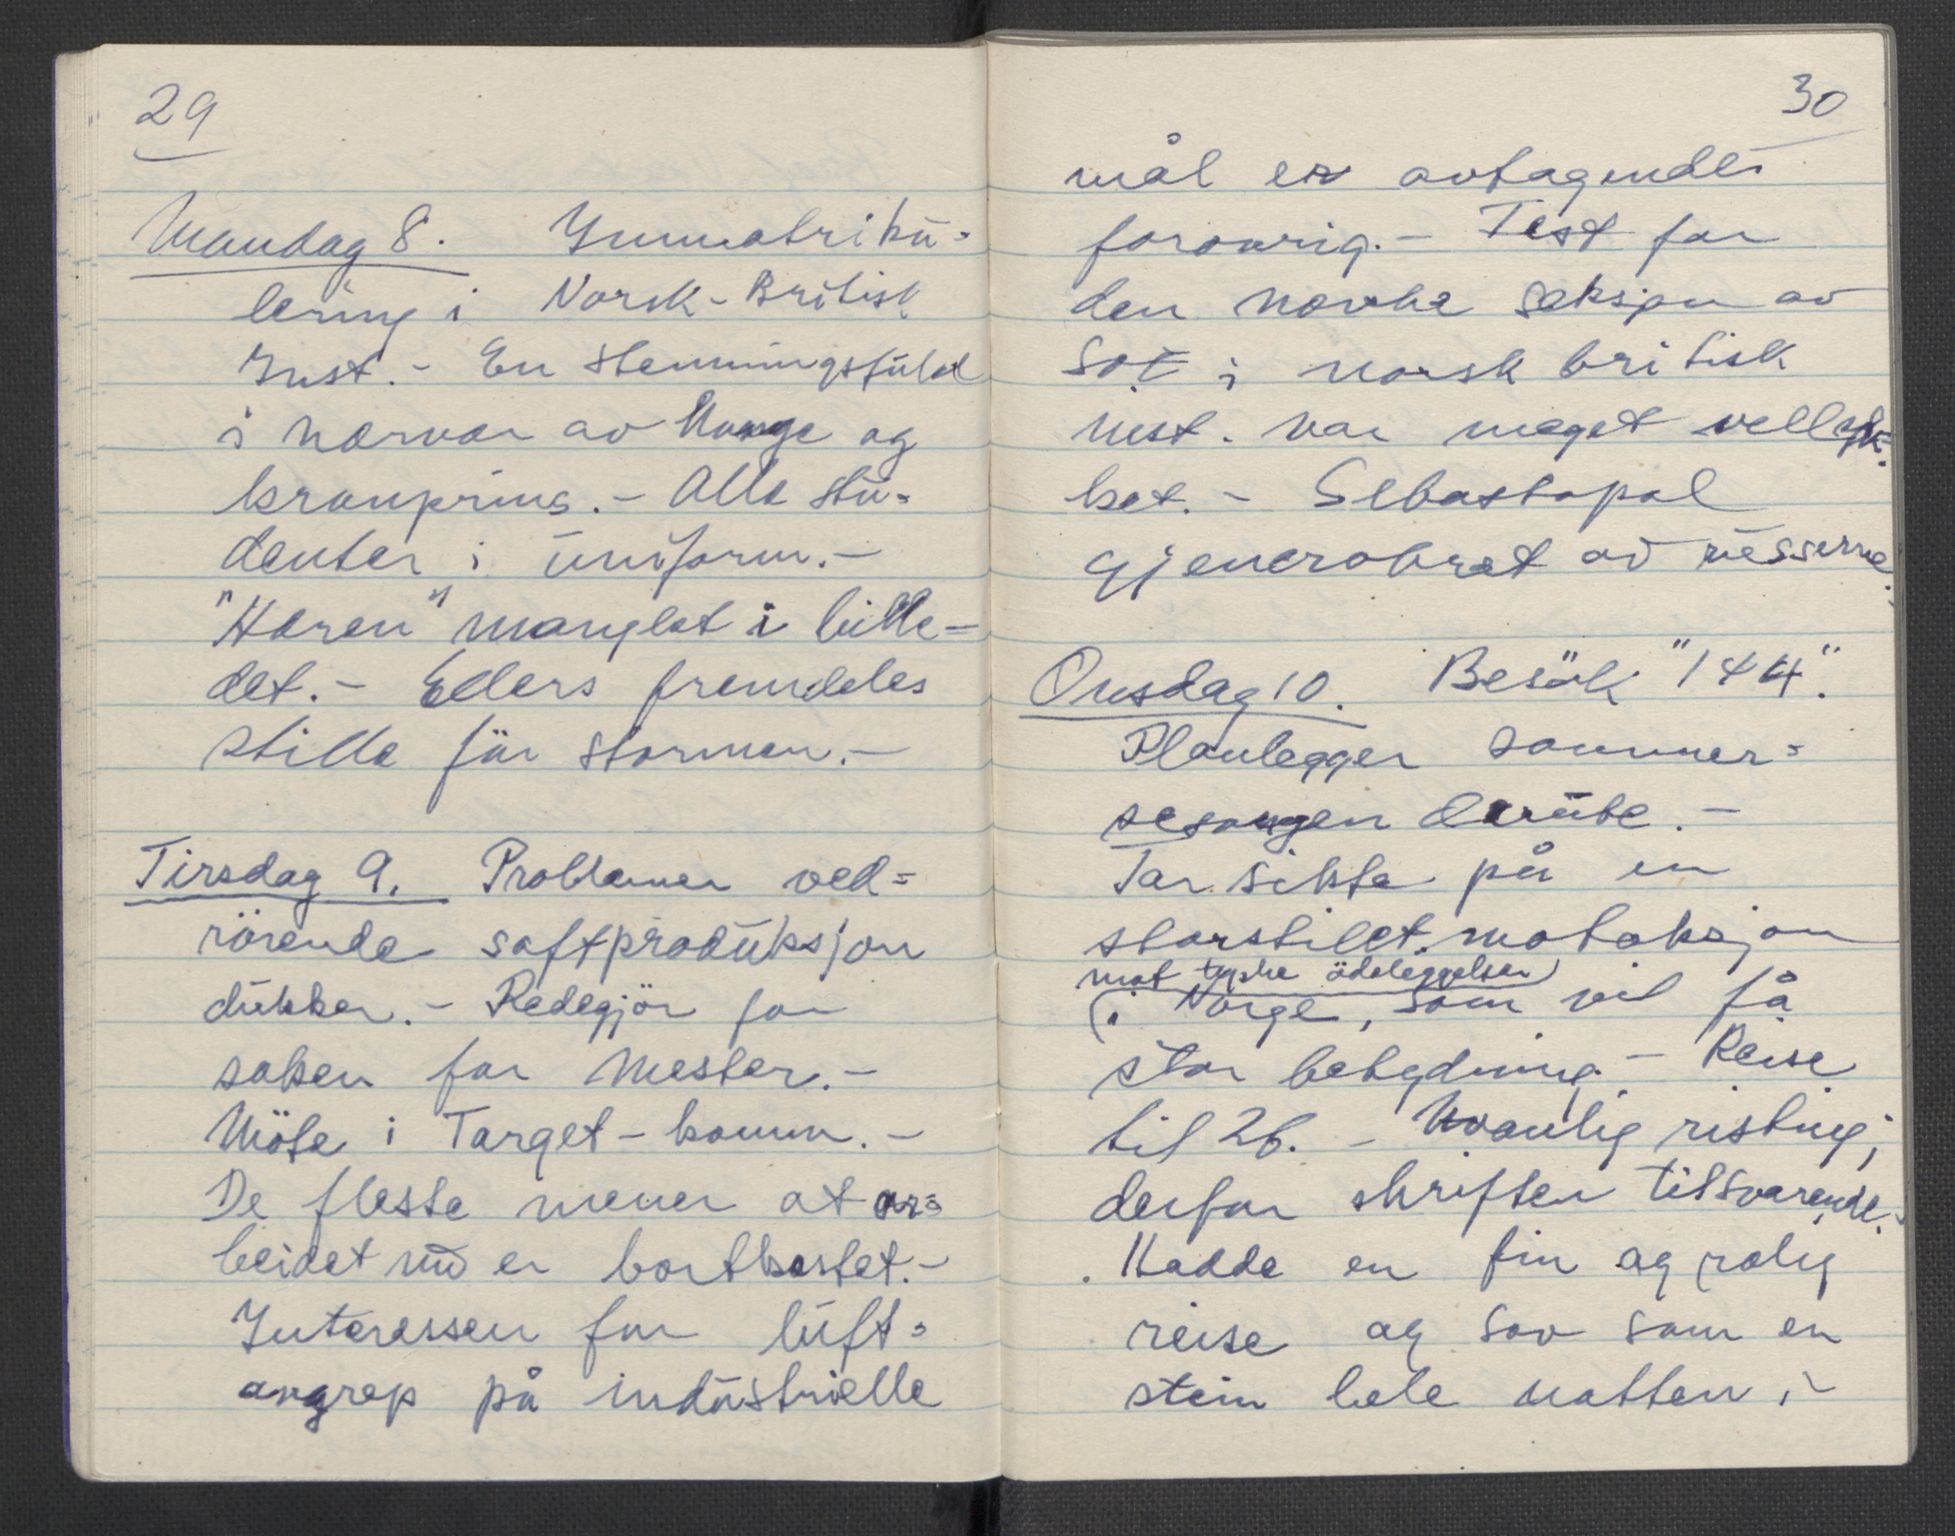 29
Mandag 8. Immatriku=
lering i Norsk-Britisk
Inst. - En stemningsfuld
i nærvær av Konge og
kronprins. - Alle stu=
denter i uniform. -
"Hæren" manglet i bille=
det. - Ellers fremdeles
stille før stormen. -
Tirsdag 9. Problemer ved=
rörende saftproduksjon
dukker. - Redegjör for
saken for Mester. -
Möte i Target-komm. -
De fleste mener at ar=
beidet nu er bortkastet. -
Interessen for luft=
angrep på industrielle
30
mål er avtagendes
forövrig. - Test for
den norske seksjon av
SOE i norsk britisk
inst. var meget vellyk=
ket. - Sebastopol
gjenerobret av russerne.
Onsdag 10. Besök "144".
Planlegger sommer=
sesongen deroppe. -
Tar sikte på en
storstilet motaksjon
mot tyske ödeleggelser
i Norge, som vil få
stor betydning - Reise
til 26. - Uvanlig risting;
derfor skriften tilsvarende.
Hadde en fin og rolig
reise og sov som en
stein hele natten i